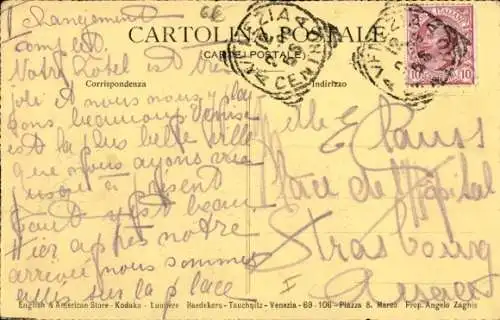 66
CARTOLINA POSTALE
(CARTE POSTALE)
Corrispondenza
Indirizzo
VENEZIA
CENTRO
10
10
Changement
complet.
Votre hôtel est très
joli et nous nous y plai
sons beaucoup Venise
est la plus belle ville
que nous ayons vue
jusqu'à présent
tout y est beau
Hier après notre
arrivée nous sommes
allés sur la place
Mlle E Pauss
Place de l'Hôpital
Strasbourg
Alsace
English & American Store - Kodaks - Lumière Baedekers - Tauchnitz - Venezia - 69-106 - Piazza S. Marco Prop. Angelo Zaghis